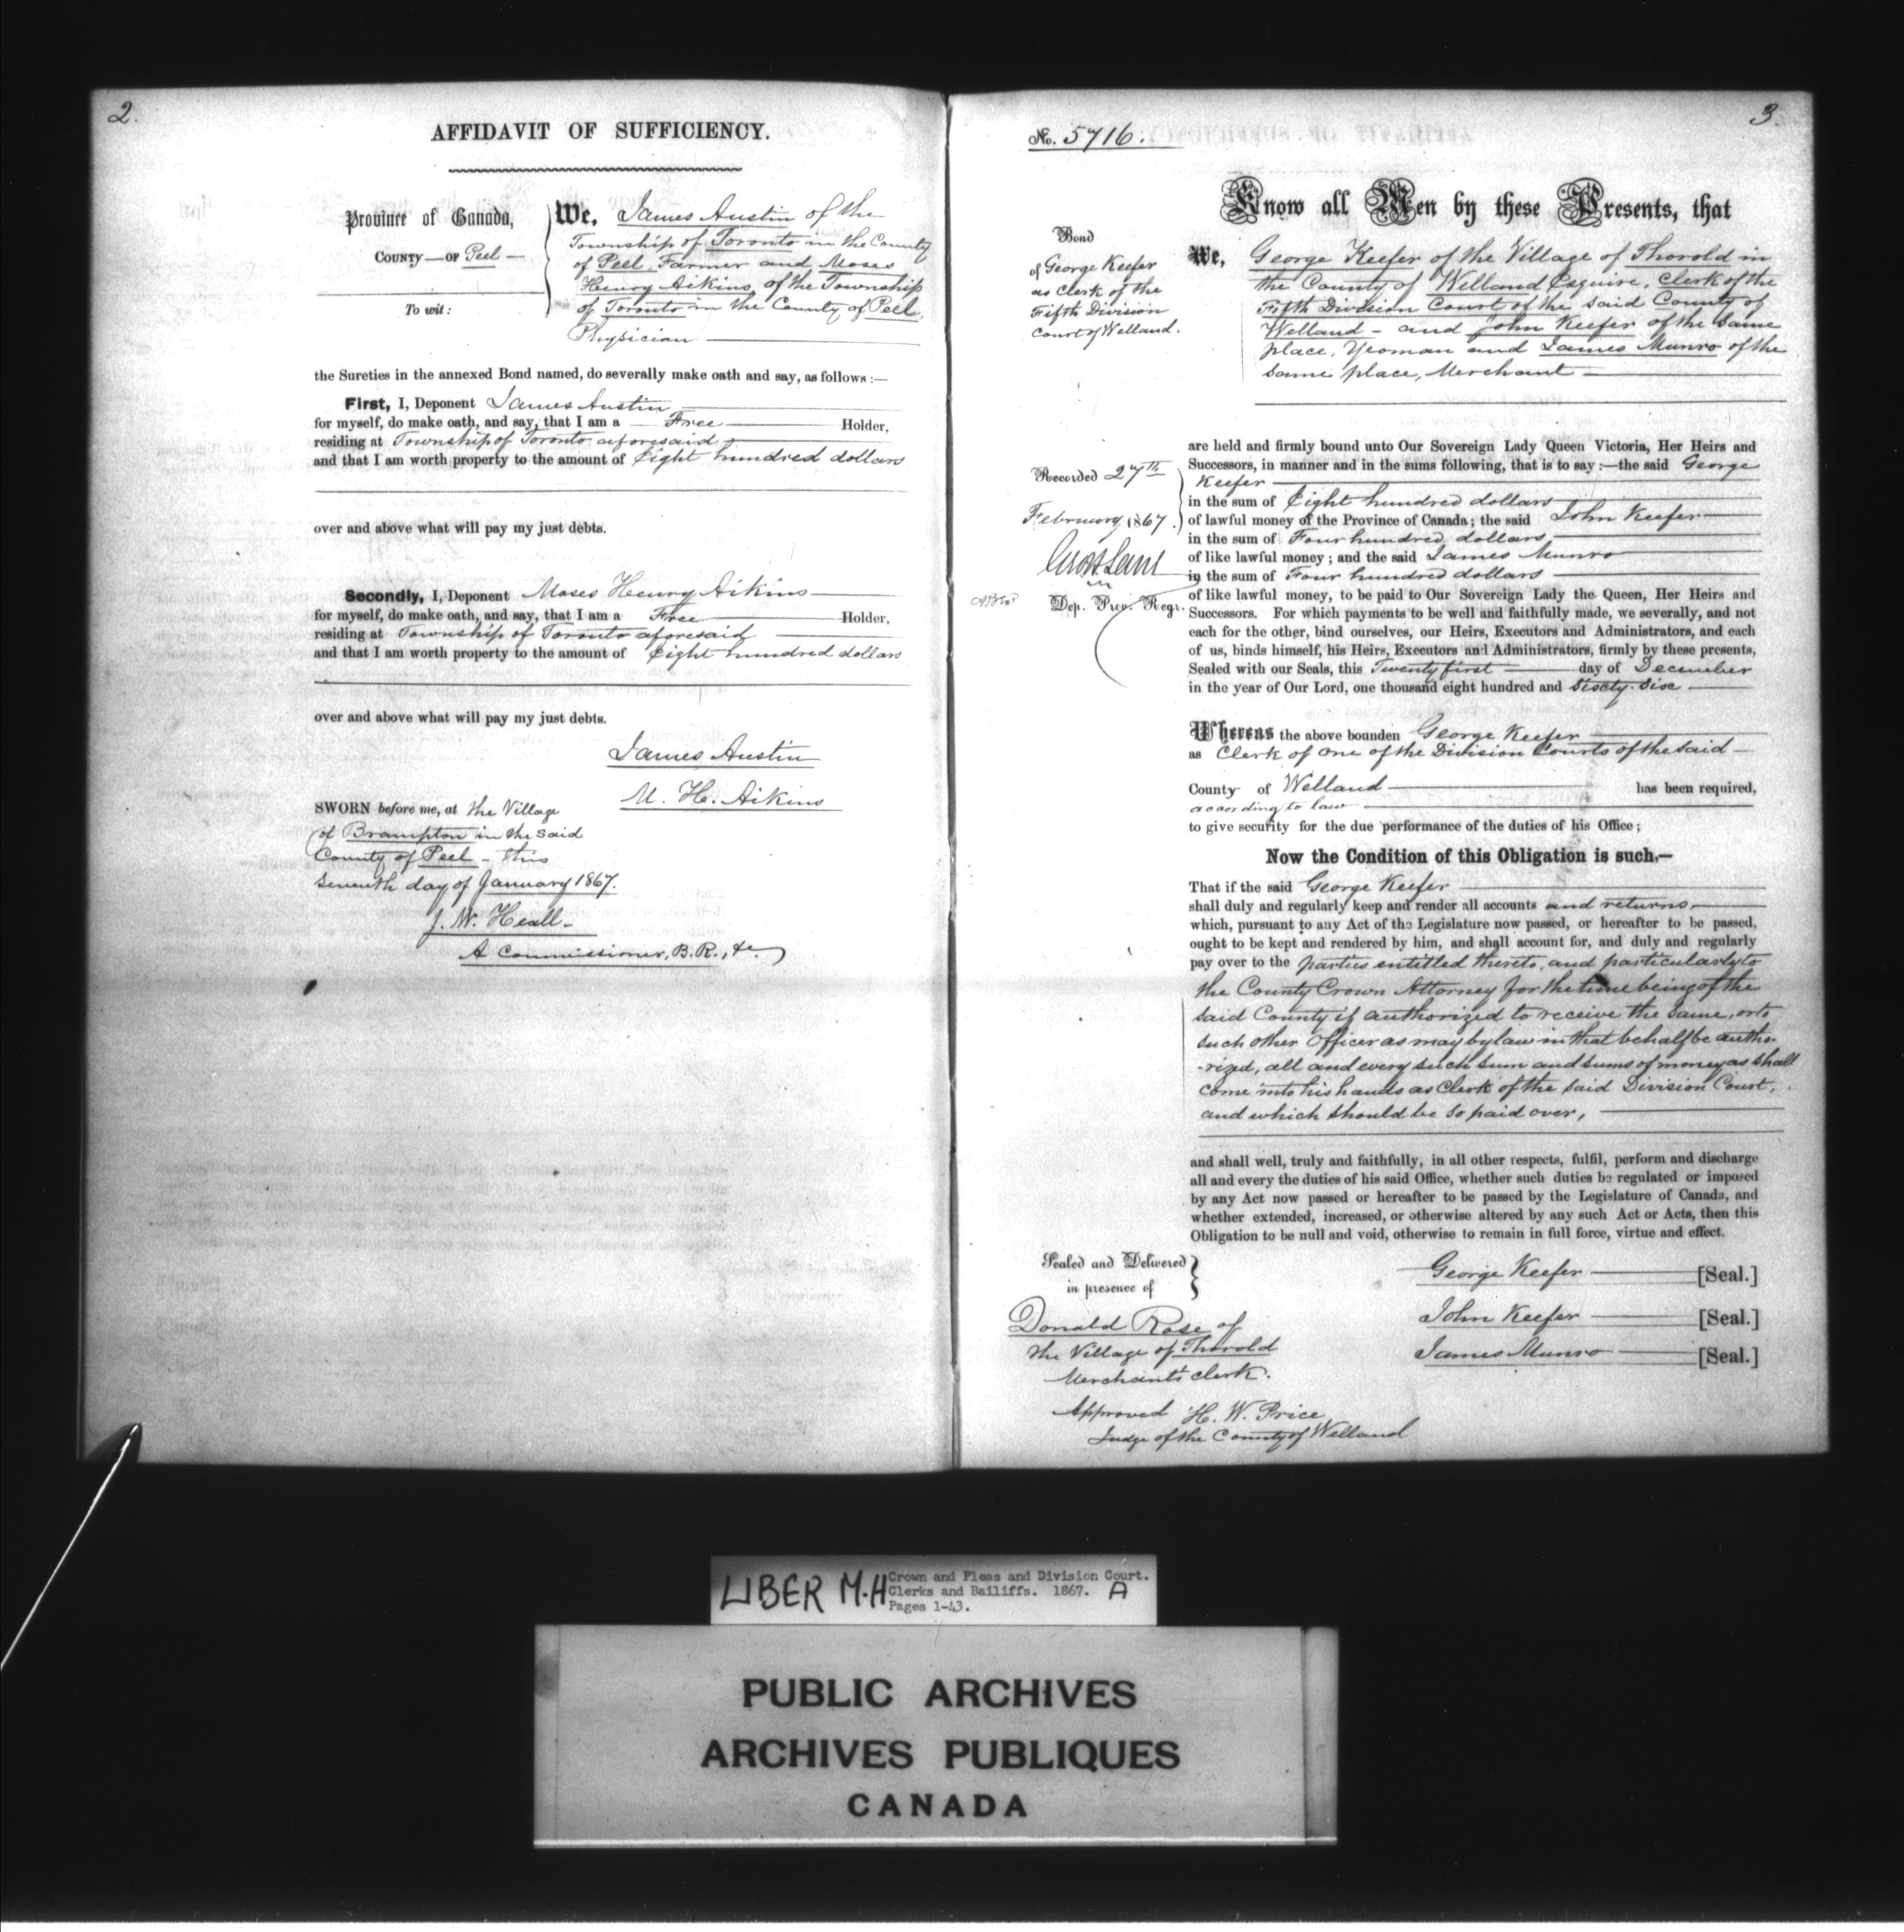 2.
AFFIDAVIT OF SUFFICIENCY.
Province of Canada,
COUNTY — OF Peel —
To wit:
We, James Austin of the
Township of Toronto in the County
of Peel, Farmer and Moses
Henry Aikins, of the Township
of Toronto in the County of Peel,
Physician
the Sureties in the annexed Bond named, do severally make oath and say, as follows :—
First, I, Deponent James Austin
for myself, do make oath, and say, that I am a Free Holder,
residing at Township of Toronto aforesaid
and that I am worth property to the amount of Eight hundred dollars
over and above what will pay my just debts.
Secondly, I, Deponent Moses Henry Aikins
for myself, do make oath, and say, that I am a Free Holder,
residing at Township of Toronto aforesaid
and that I am worth property to the amount of Eight hundred dollars
over and above what will pay my just debts.
James Austin
M. H. Aikins
SWORN before me, at the Village
of Brampton in the said
County of Peel - this
seventh day of January 1867.
J. W.
A Commissioner, B.R., &c.
3.
No. 5716.
Know all Men by these Presents, that
Bond
of George Keefer
as Clerk of the
Fifth Division
Court of Welland.
We, George Keefer of the Village of Thorold in
the County of Welland Esquire, Clerk of the
Fifth Division Court of the said County of
Welland - and John Keefer of the same
place, Yeoman and James Munro of the
same place, Merchant
are held and firmly bound unto Our Sovereign Lady Queen Victoria, Her Heirs and
Successors, in manner and in the sums following, that is to say :—the said George
Keefer
in the sum of Eight hundred dollars
of lawful money of the Province of Canada; the said John Keefer
in the sum of Four hundred dollars,
of like lawful money; and the said James Munro
in the sum of Four hundred dollars
of like lawful money, to be paid to Our Sovereign Lady the Queen, Her Heirs and
Successors. For which payments to be well and faithfully made, we severally, and not
each for the other, bind ourselves, our Heirs, Executors and Administrators, and each
of us, binds himself, his Heirs, Executors and Administrators, firmly by these presents,
Sealed with our Seals, this Twenty first day of December
in the year of Our Lord, one thousand eight hundred and Sixty-Six
Recorded 27th
February 1867.
Dep. Prov. Regr.
Whereas the above bounden George Keefer
as Clerk of one of the Division Courts of the said —
County of Welland has been required,
according to law
to give security for the due performance of the duties of his Office;
Now the Condition of this Obligation is such,—
That if the said George Keefer
shall duly and regularly keep and render all accounts and returns
which, pursuant to any Act of the Legislature now passed, or hereafter to be passed,
ought to be kept and rendered by him, and shall account for, and duly and regularly
pay over to the parties entitled thereto, and particularly to
the County Crown Attorney for the time being of the
said County if authorized to receive the same, or to
such other Officer as may by law in that behalf be autho-
-rized, all and every such sum and sums of money as shall
come into his hands as Clerk of the said Division Court,
and which should be so paid over,
and shall well, truly and faithfully, in all other respects, fulfil, perform and discharge
all and every the duties of his said Office, whether such duties be regulated or imposed
by any Act now passed or hereafter to be passed by the Legislature of Canada, and
whether extended, increased, or otherwise altered by any such Act or Acts, then this
Obligation to be null and void, otherwise to remain in full force, virtue and effect.
Sealed and Delivered
in presence of
Donald Rose of
the Village of Thorold
Merchant's clerk.
George Keefer [Seal.]
John Keefer [Seal.]
James Munro [Seal.]
Approved H. W. Price
Judge of the County of Welland
LIBER M.H
Crown and Pleas and Division Court.
Clerks and Bailiffs. 1867. A
Pages 1-43.
PUBLIC ARCHIVES
ARCHIVES PUBLIQUES
CANADA